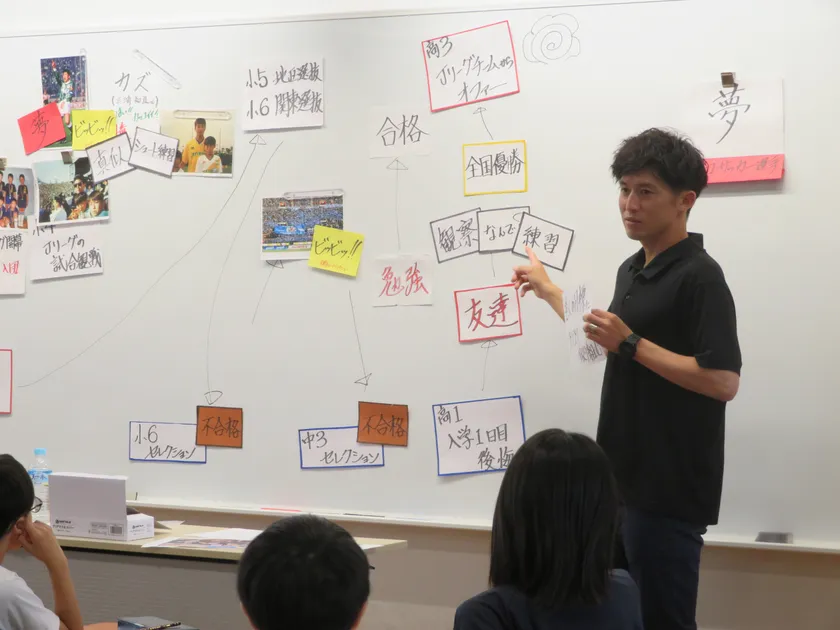 夢
ビビッ!!
カズ
真似
シュート練習
小4
Jリーグの
試合観戦
小5 地区選抜
小6 関東選抜
ビビッ!!
合格
勉強
高3
Jリーグチームから
オファー
全国優勝
観察
なんで
練習
友達
高1
入学1日目
後悔
小6
セレクション
不合格
中3
セレクション
不合格
夢